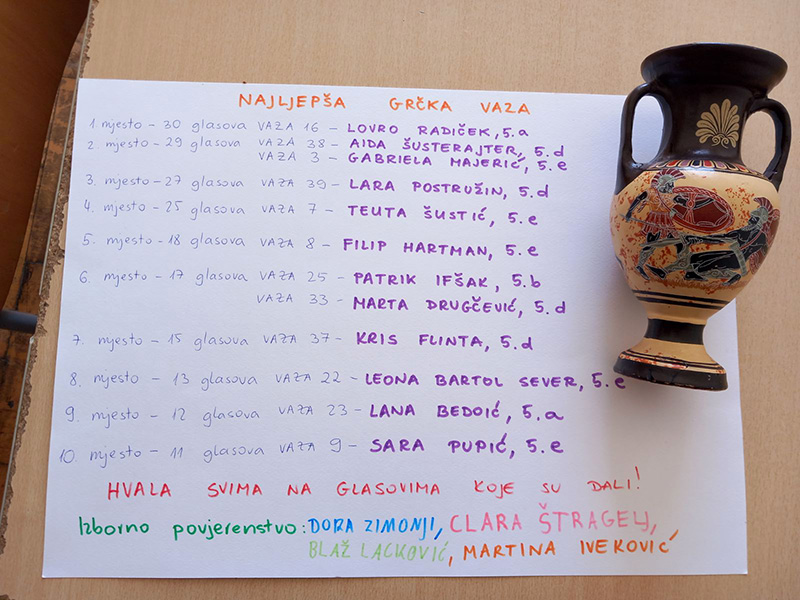 NAJLJEPŠA GRČKA VAZA
1. mjesto - 30 glasova VAZA 16 - LOVRO RADIČEK, 5.a
2. mjesto - 29 glasova VAZA 38 - AIDA ŠUSTERAJTER, 5.d
VAZA 3 - GABRIELA MAJERIĆ, 5.e
3. mjesto - 27 glasova VAZA 39 - LARA POSTRUŠIN, 5.d
4. mjesto - 25 glasova VAZA 7 - TEUTA ŠUSTIĆ, 5.e
5. mjesto - 18 glasova VAZA 8 - FILIP HARTMAN, 5.e
6. mjesto - 17 glasova VAZA 25 - PATRIK IFŠAK, 5.b
VAZA 33 - MARTA DRUGČEVIĆ, 5.d
7. mjesto - 15 glasova VAZA 37 - KRIS FLINTA, 5.d
8. mjesto - 13 glasova VAZA 22 - LEONA BARTOL SEVER, 5.e
9. mjesto - 12 glasova VAZA 23 - LANA BEDOIĆ, 5.a
10. mjesto - 11 glasova VAZA 9 - SARA PUPIĆ, 5.e
HVALA SVIMA NA GLASOVIMA KOJE SU DALI!
Izborno povjerenstvo: DORA ZIMONJI, CLARA ŠTRAGELJ,
BLAŽ LACKOVIĆ, MARTINA IVEKOVIĆ